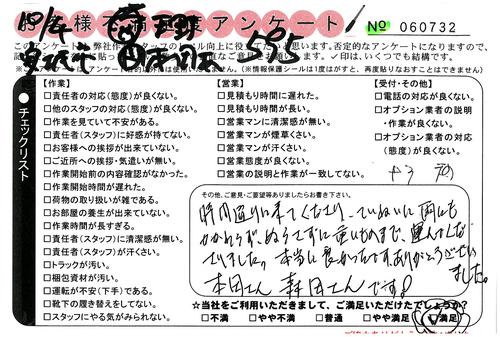 お客様不満足度アンケート
No 060732
このアンケートは、弊社作
スタッフのレベル向上に役
たいと思います。否定的なアンケートになりますので、
ご意見をお願いします。✓印は、いくつでも結構です。
的以外は使用いたしません。(※情報保護シールは1度はがすと、再度貼りなおすことはできません)
チェックリスト
【作業】
□責任者の対応(態度)が良くない。
□他のスタッフの対応(態度)が良くない。
□作業を見ていて不安がある。
□責任者(スタッフ)に好感が持てない。
□お客様への挨拶が出来ていない。
□ご近所への挨拶・気遣いが無い。
□作業開始前の内容確認がなかった。
□作業開始時間が遅れた。
□荷物の取り扱いが雑である。
□お部屋の養生が出来ていない。
□作業時間が長すぎる。
□責任者(スタッフ)に清潔感が無い。
□責任者(スタッフ)が汗くさい。
□トラックが汚い。
□梱包資材が汚い。
□運転が不安(下手)である。
□靴下の履き替えをしてない。
□スタッフにやる気がみられない。
【営業】
□見積もり時間に遅れた。
□見積もり時間が長い。
□営業マンに清潔感が無い。
□営業マンが煙草くさい。
□営業マンが汗くさい。
□営業態度が良くない。
□営業の説明と作業が一致してない。
【受付・その他】
□電話の対応が良くない。
□オプション業者の説明
・作業が良くない。
□オプション業者の対応
(態度)が良くない。
その他、ご意見・ご要望等ありましたらお書き下さい。
時間通りに来てくださり、ていねいに雨にも
かかわらず、ぬらさずに重い物まで、運んでくだ
さいました。本当に良かったです。ありがとうござい
ました。
本田さん 森田さんです!
☆当社をご利用いただきまして、ご満足いただけたでしょうか?
□不満 □やや不満 □普通 □やや満足 □満足